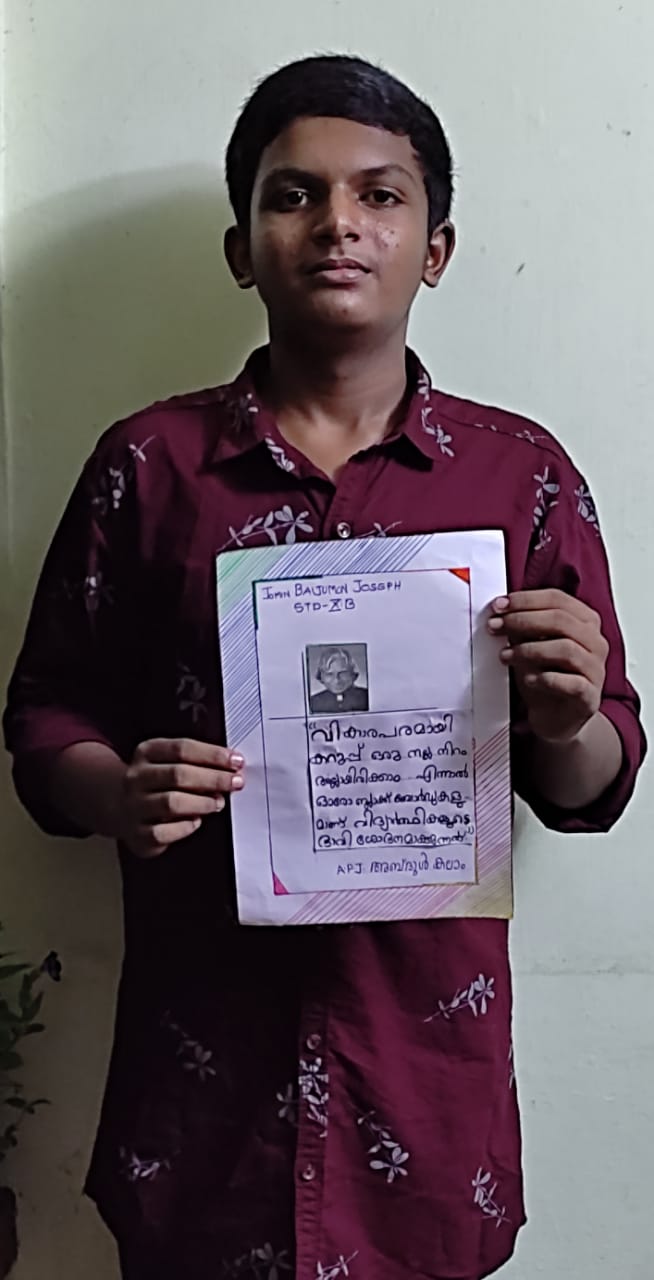 JOMIN BAIJUMON JOSEPH
STD-X B
"വികാരപരമായി
കറുപ്പ് ഒരു നല്ല നിറം
അല്ലായിരിക്കാം എന്നാൽ
ഓരോ ബ്ലാക്ക് ബോർഡുകളു-
മാണ് വിദ്യാർത്ഥികളുടെ
ഭാവി ശോഭനമാക്കുന്നത്."
APJ അബ്ദുൾ കലാം